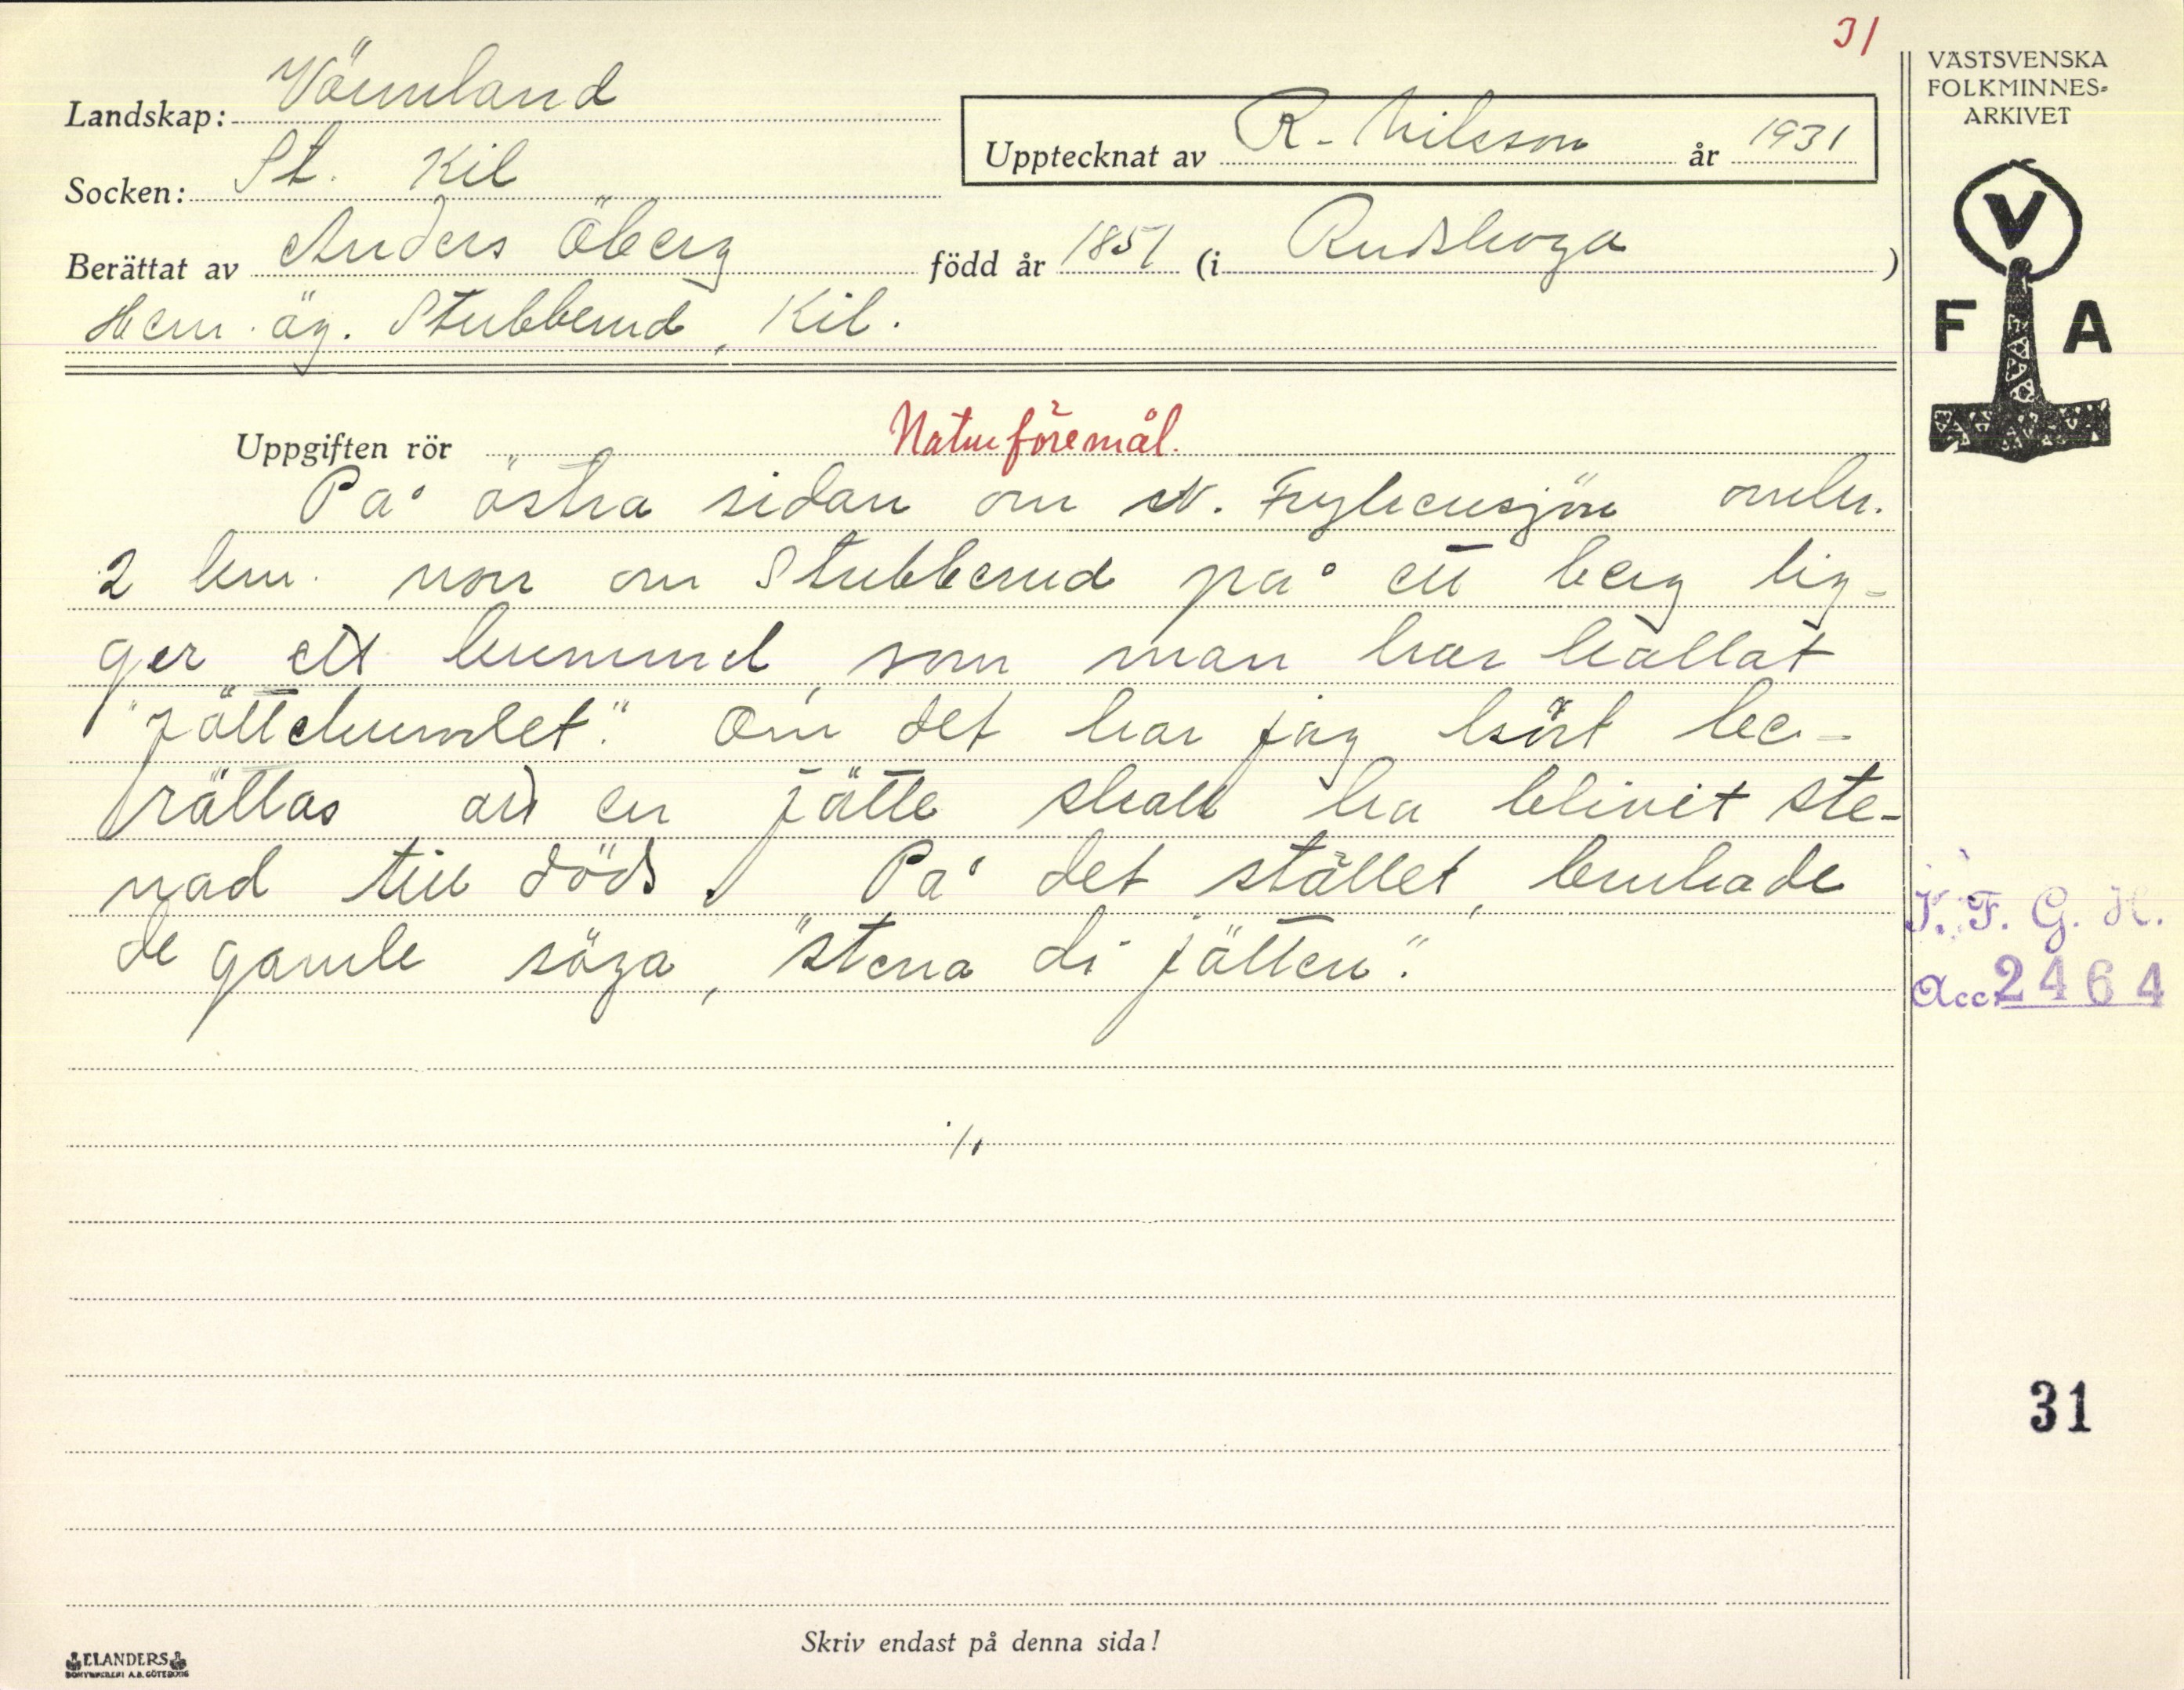 31
VÄSTSVENSKA
FOLKMINNES-
ARKIVET
Landskap: Värmland
Upptecknat av R. Nilsson år 1931
Socken: St. Kil
Berättat av Anders Öberg född år 1851 (i Rudskoga)
Hem. äg. Stubberud, Kil.
V
F A
Uppgiften rör Naturföremål.
På östra sidan om N. Frykensjön omkr.
2 km. norr om Stubberud på ett berg lig-
ger ett kummel, som man har kallat
"jättekumlet." Om det har jag hört be-
rättas att en jätte skall ha blivit ste-
nad till döds. På det stället, brukade
de gamle säga, "stena di jätten".
K. F. G. H.
Acc. 2464
./.
31
Skriv endast på denna sida!
ELANDERS
BOKTRYCKERI A.B. GÖTEBORG